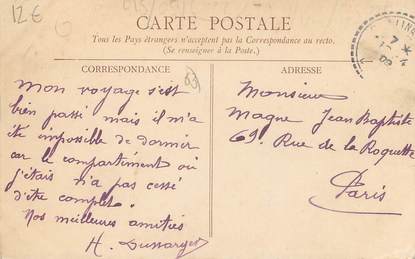 12€
CARTE POSTALE
Tous les Pays étrangers n'acceptent pas la Correspondance au recto.
(Se renseigner à la Poste.)
CORRESPONDANCE
Mon voyage s'est
bien passé mais il m'a
été impossible de dormir
car le compartiment où
j'étais n'a pas cessé
d'être complet.
Nos meilleures amitiés
ADRESSE
Monsieur
Magne Jean Baptiste
69. Rue de la Roquette
Paris